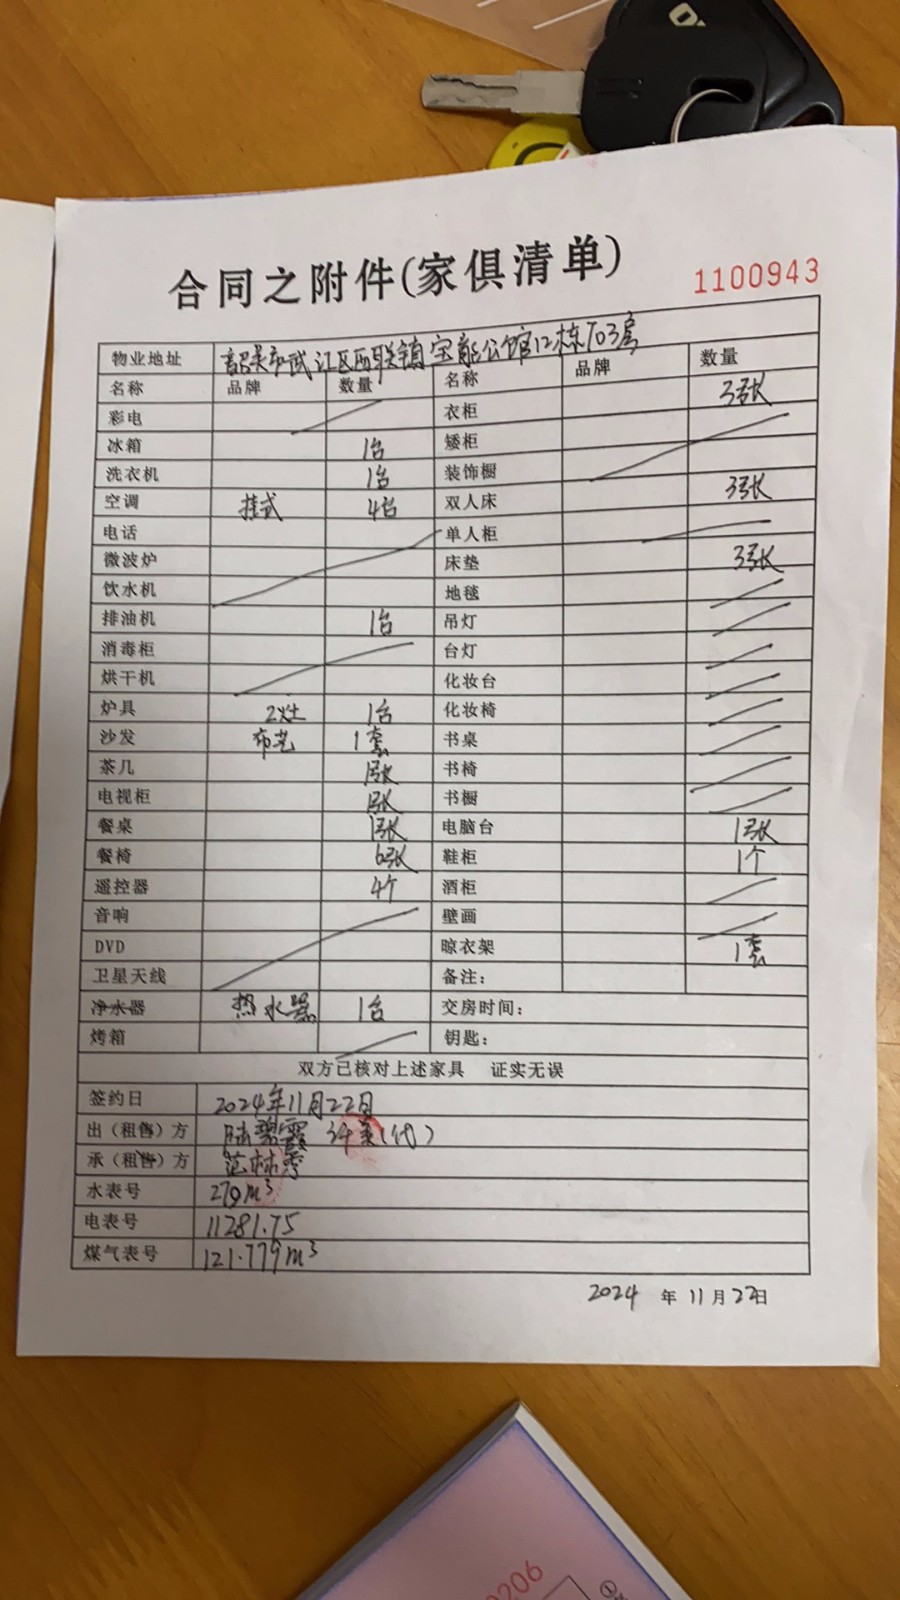 合同之附件(家俱清单)
1100943
物业地址 韶关市武江区西联镇宝能公馆12栋703房
名称 品牌 数量 名称 品牌 数量
彩电 衣柜 3张
冰箱 1台 矮柜
洗衣机 1台 装饰橱
空调 挂式 4台 双人床 3张
电话 单人柜
微波炉 床垫 3张
饮水机 地毯
排油机 1台 吊灯
消毒柜 台灯
烘干机 化妆台
炉具 2灶 1台 化妆椅
沙发 布艺 1套 书桌
茶几 1张 书椅
电视柜 1张 书橱
餐桌 1张 电脑台 1张
餐椅 6张 鞋柜 1个
遥控器 4个 酒柜
音响 壁画
DVD 晾衣架 1套
卫星天线 备注：
净水器 热水器 1台 交房时间：
烤箱 钥匙：
双方已核对上述家具 证实无误
签约日 2024年11月22日
出（租售）方 陆碧霞 (代)
承（租售）方 范林秀
水表号 279m³
电表号 11281.75
煤气表号 121.779m³
2024 年 11 月 22日
0206
①